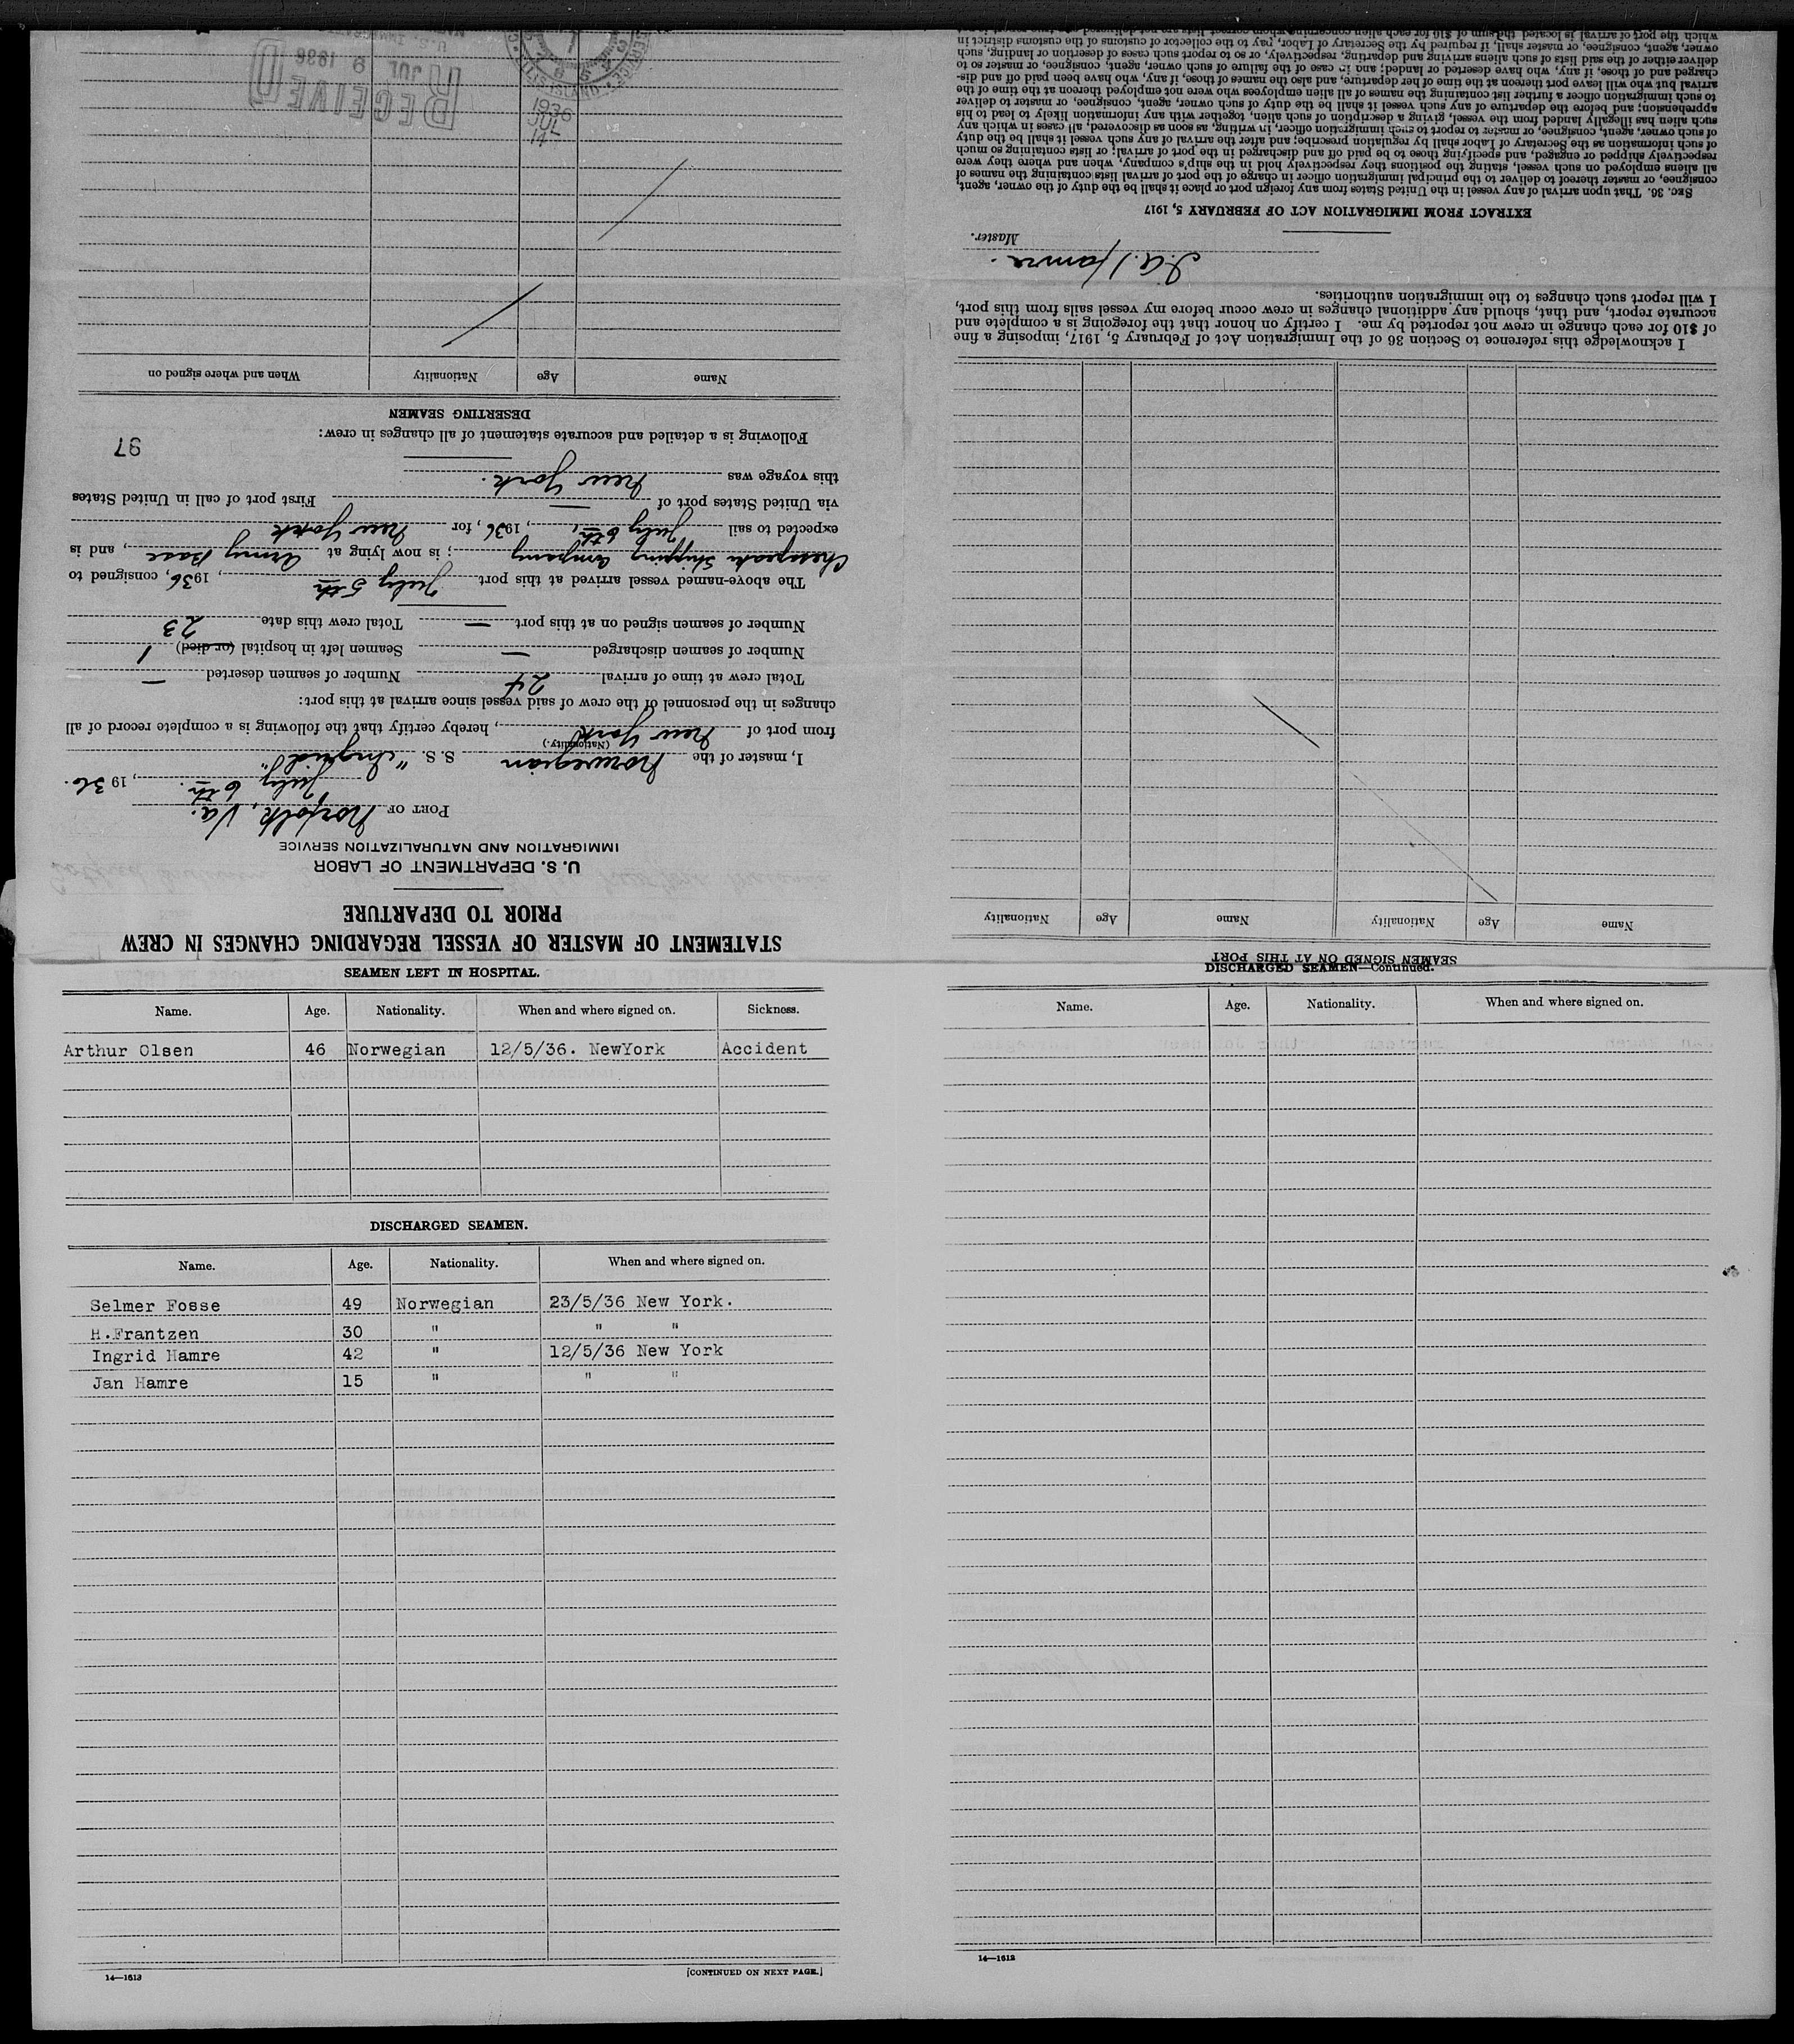 STATEMENT OF MASTER OF VESSEL REGARDING CHANGES IN CREW
PRIOR TO DEPARTURE
U. S. DEPARTMENT OF LABOR
IMMIGRATION AND NATURALIZATION SERVICE
PORT OF Norfolk, Va.
July 6th, 1936.
I, master of the Norwegian S. S. "Ingrid"
(Nationality.)
from port of New York, hereby certify that the following is a complete record of all
changes in the personnel of the crew of said vessel since arrival at this port:
Total crew at time of arrival 24 Number of seamen deserted —
Number of seamen discharged — Seamen left in hospital (or died) 1
Number of seamen signed on at this port — Total crew this date 23
The above-named vessel arrived at this port July 5th, 1936, consigned to
Chesapeake Shipping Company; is now lying at Army Base, and is
expected to sail July 6th, 1936, for New York
via United States port of — First port of call in United States
this voyage was New York.
Following is a detailed and accurate statement of all changes in crew:
97
DESERTING SEAMEN
Name Age Nationality When and where signed on
1936
JUL
14
RECEIVED
JUL 9 1936
SEAMEN SIGNED ON AT THIS PORT
Name Age Nationality Name Age Nationality
I acknowledge this reference to Section 36 of the Immigration Act of February 5, 1917, imposing a fine
of $10 for each change in crew not reported by me. I certify on honor that the foregoing is a complete and
accurate report, and that, should any additional changes in crew occur before my vessel sails from this port,
I will report such changes to the immigration authorities.
Hamre.
Master.
EXTRACT FROM IMMIGRATION ACT OF FEBRUARY 5, 1917
SEC. 36. That upon arrival of any vessel in the United States from any foreign port or place it shall be the duty of the owner, agent,
consignee, or master thereof to deliver to the principal immigration officer in charge of the port of arrival lists containing the names of
all aliens employed on such vessel, stating the positions they respectively hold in the ship's company, when and where they were
respectively shipped or engaged, and specifying those to be paid off and discharged in the port of arrival; or lists containing so much
of such information as the Secretary of Labor shall by regulation prescribe; and after the arrival of any such vessel it shall be the duty
of such owner, agent, consignee, or master to report to such immigration officer, in writing, as soon as discovered, all cases in which any
such alien has illegally landed from the vessel, giving a description of such alien, together with any information likely to lead to his
apprehension; and before the departure of any such vessel it shall be the duty of such owner, agent, consignee, or master to deliver
to such immigration officer a further list containing the names of all alien employees who were not employed thereon at the time of the
arrival but who will leave port thereon at the time of her departure, and also the names of those, if any, who have been paid off and dis-
charged and of those, if any, who have deserted or landed; and in case of the failure of such owner, agent, consignee, or master so to
deliver either of the said lists of such aliens arriving and departing, respectively, or so to report such cases of desertion or landing, such
owner, agent, consignee, or master shall, if required by the Secretary of Labor, pay to the collector of customs of the customs district in
which the port of arrival is located the sum of $10 for each alien concerning whom correct lists are not delivered
SEAMEN LEFT IN HOSPITAL.
Name. Age. Nationality. When and where signed on. Sickness.
Arthur Olsen 46 Norwegian 12/5/36. NewYork Accident
DISCHARGED SEAMEN.
Name. Age. Nationality. When and where signed on.
Selmer Fosse 49 Norwegian 23/5/36 New York.
H.Frantzen 30 " " "
Ingrid Hamre 42 " 12/5/36 New York
Jan Hamre 15 " " "
14—1613
[CONTINUED ON NEXT PAGE.]
DISCHARGED SEAMEN—Continued.
Name. Age. Nationality. When and where signed on.
14—1612